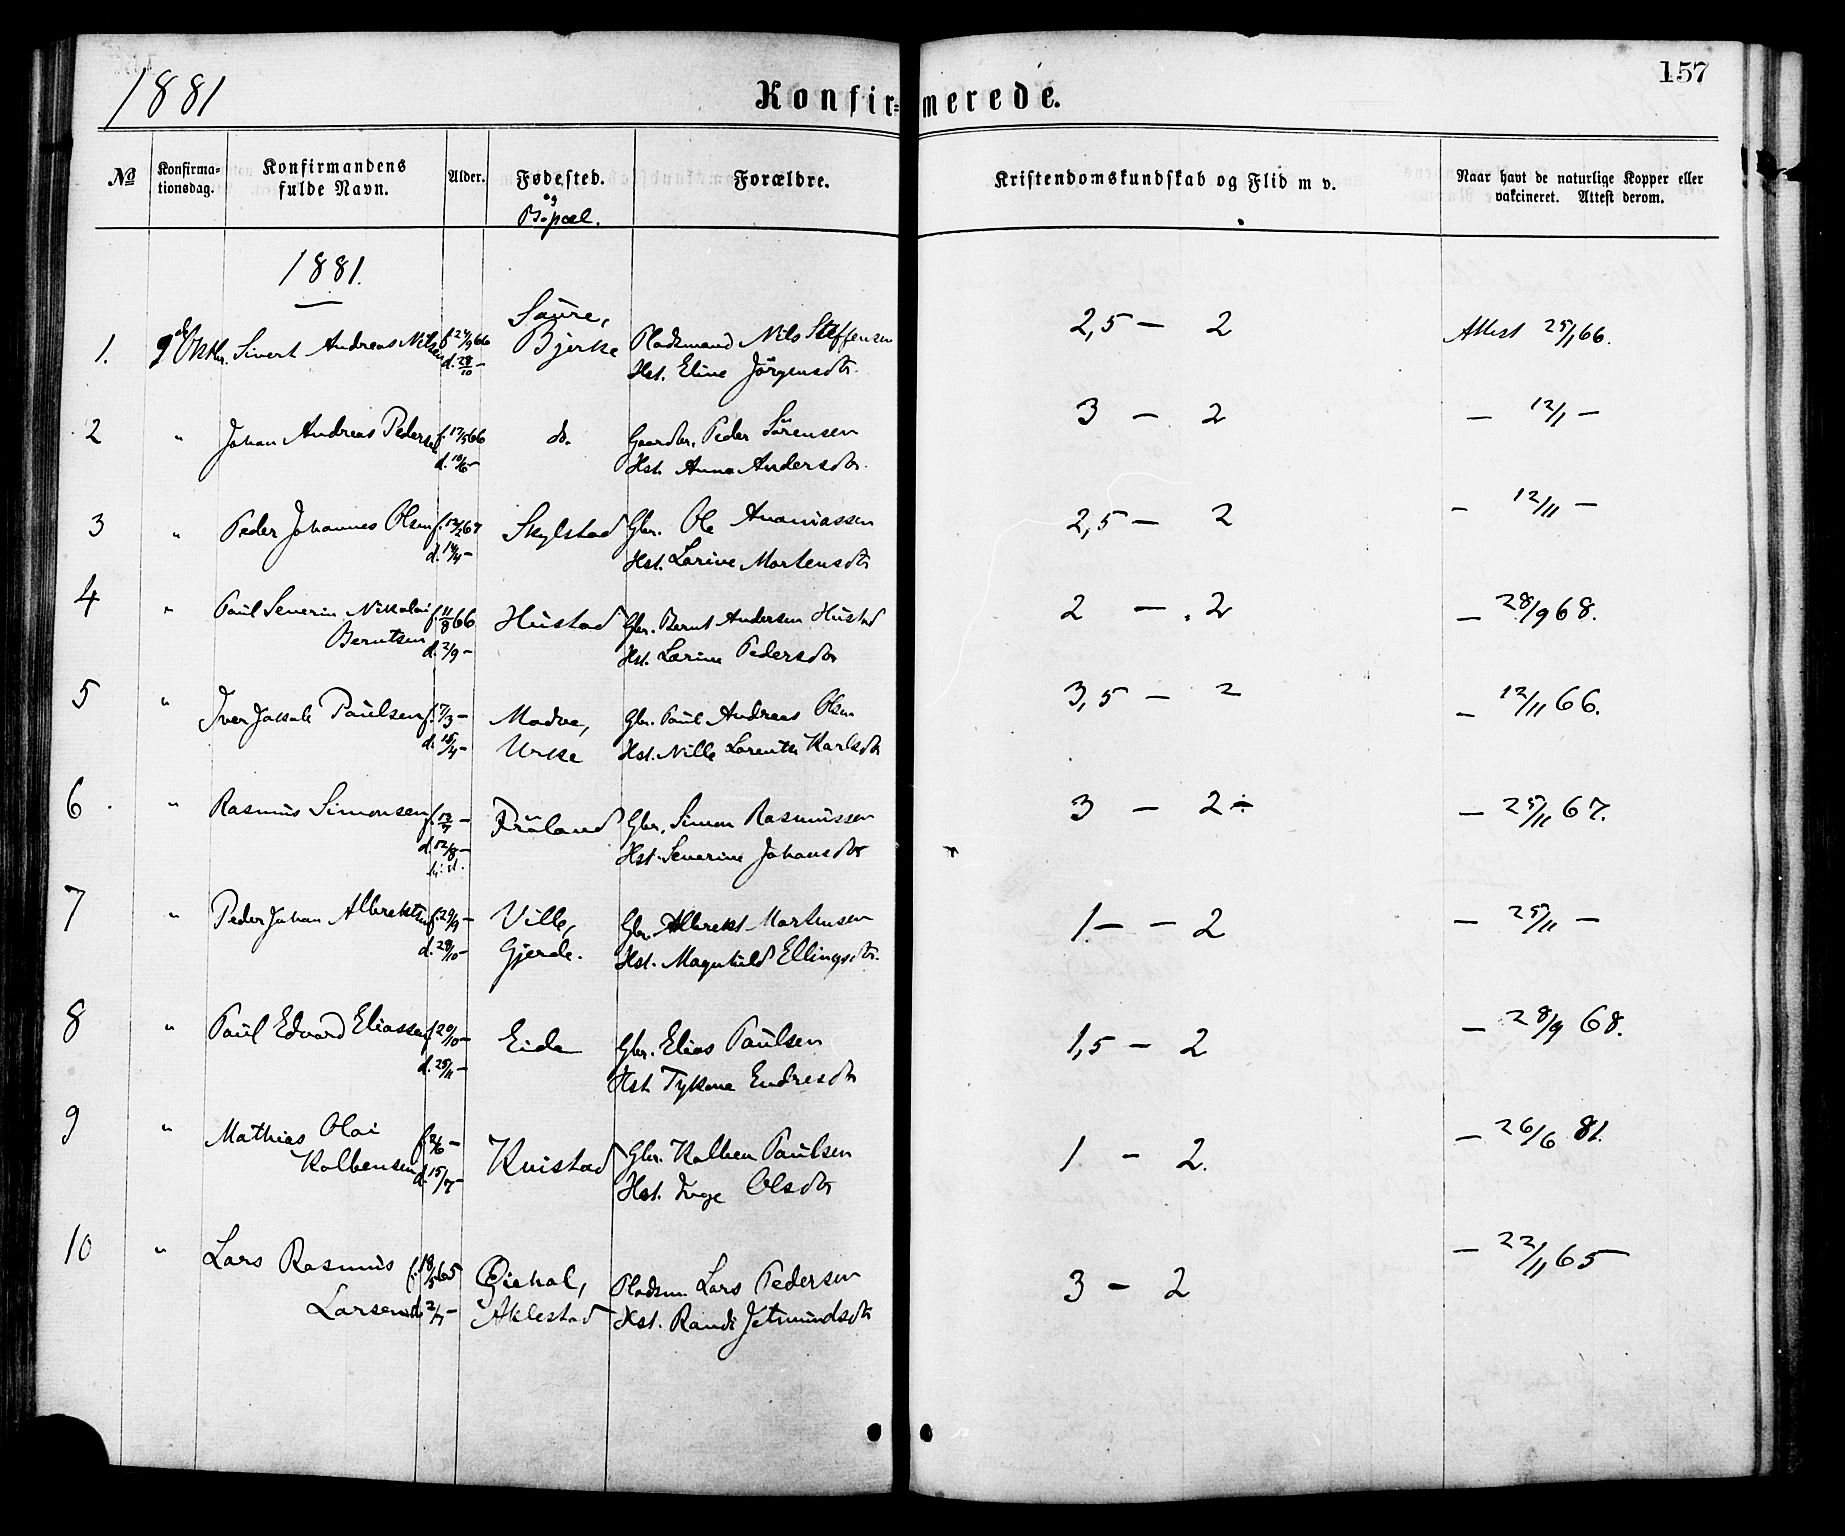 1881
Konfirmerede.
157
No
Konfirmationsdag.
Konfirmandens fulde Navn.
Alder.
Fødested.
og
Bopæl.
Forældre.
Kristendomskundskab og Flid m v.
Naar havt de naturlige Kopper eller vakcineret. Attest derom.
1881.
1. 9de Oktbr. Sivert Andreas Nilsen f. 24/9 66 Saure, Pladsmand Nils Steffensen 2,5 – 2 Attest 25/1 66.
d. 28/10 – Bjerke Hst. Eline Jörgensdtr.
2 " Johan Andreas Pedersen f. 17/5 66 do. Gaardbr. Peder Sörensen 3 – 2 – 12/1 –
d. 10/6 – Hst. Anna Andersdtr.
3 " Peder Johannes Olsen f. 12/2 67 Skylstad Gbr. Ole Ananiassen 2,5 – 2 – 12/11 –
d. 14/4 – Hst. Larine Martensdtr
4 " Paul Severin Nikolai f. 11/8 66 Hustad Gbr. Bernt Andersen Hustad 2 – 2 – 28/9 68.
Berntsen d. 2/9 – Hst. Larine Pedersdtr
5 " Iver Jakob Paulsen f. 7/3 – Madva, Gbr. Paul Andreas Olsen 3,5 – 2 – 12/11 66.
d. 15/4 – Urke Hst. Nille Lorentse Karlsdtr
6 " Rasmus Simonsen f. 12/7 – Fröland Gbr. Simon Rasmussen 3 – 2 ÷ – 25/11 67.
d. 12/8 – Hst. Severine Johansdtr
7 " Peder Johan Albrektsen f. 29/9 – Ville, Gbr. Albrekt Martensen 1 – – 2 – 25/11 –
d. 28/10 – Gjerde. Hst. Magnhild Ellingsdtr.
8 " Paul Edvard Eliassen f. 20/10 – Eide Gbr. Elias Paulsen 1,5 – 2 – 28/9 68.
d. 25/11 – Hst. Endresdtr
9 " Mathias Olai f. 2/6 – Knistad Gbr. Kolben Paulsen 1 – 2. – 26/6 81.
Kolbensen d. 15/7 – Hst. Inge Olsdtr
10 " Lars Rasmus f. 18/5 65 Pladsm. Lars Pedersen 3 – 2 – 22/11 65
Larsen d. 2/7 – Aklestad Hst. Randi Jetmundsdtr